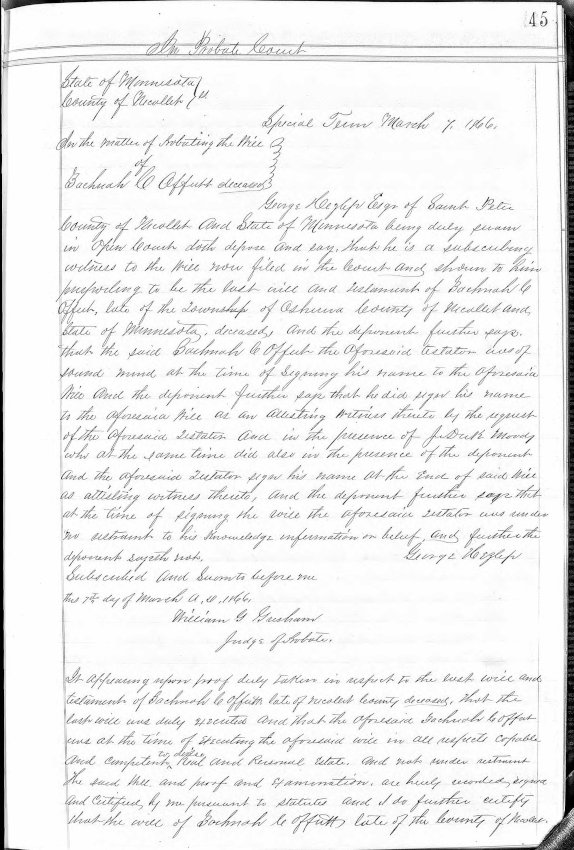 45
In Probate Court
State of Minnesota
County of Nicollet } ss
Special Term March 7. 1866.
In the matter of Probating the Will
of
Zachnah C Offutt deceased
George Hezlep Esqr of Saint Peter
County of Nicollet And State of Minnesota being duly sworn
in Open Court doth depose and say, that he is a subscribing
witness to the Will now filed in the Court and shown to him
purporting to be the last will and testament of Zachnah C
Offut, late of the Township of Oshawa County of Nicollet and
State of Minnesota, deceased, And the deponent further says.
that the said Zachnah C Offut the Aforesaid testator was of
sound mind at the time of Signing his name to the Aforesaid
Will And the deponent further says that he did sign his name
to the Aforesaid Will as an Attesting Witness thereto by the request
of the Aforesaid Testator And in the presence of J. Moody
who at the same time did also in the presence of the deponent
And the aforesaid Testator sign his name At the End of said Will
as attesting witness thereto, And the deponent further says that
at the time of signing the will the aforesaid testator was under
no restraint to his knowledge information or belief, and further the
deponent sayeth not. George Hezlep
Subscribed And Sworn to before me
this 7th day of March A.D. 1866.
William G Gresham
Judge of Probate.
It appearing upon proof duly taken in respect to the last will and
testament of Zachnah C Offutt late of Nicollet County deceased, that the
last will was duly executed and that the aforesaid Zachnah C Offut
was at the time of executing the aforesaid will in all respects capable
And competent to devise Real and Personal Estate. and not under restraint
the said Will and proof and Examination. are hereby recorded, signed
And Certified, by me pursuant to statutes and I do further certify
that the will of Zachnah C Offutt, late of the County of Nicollet.